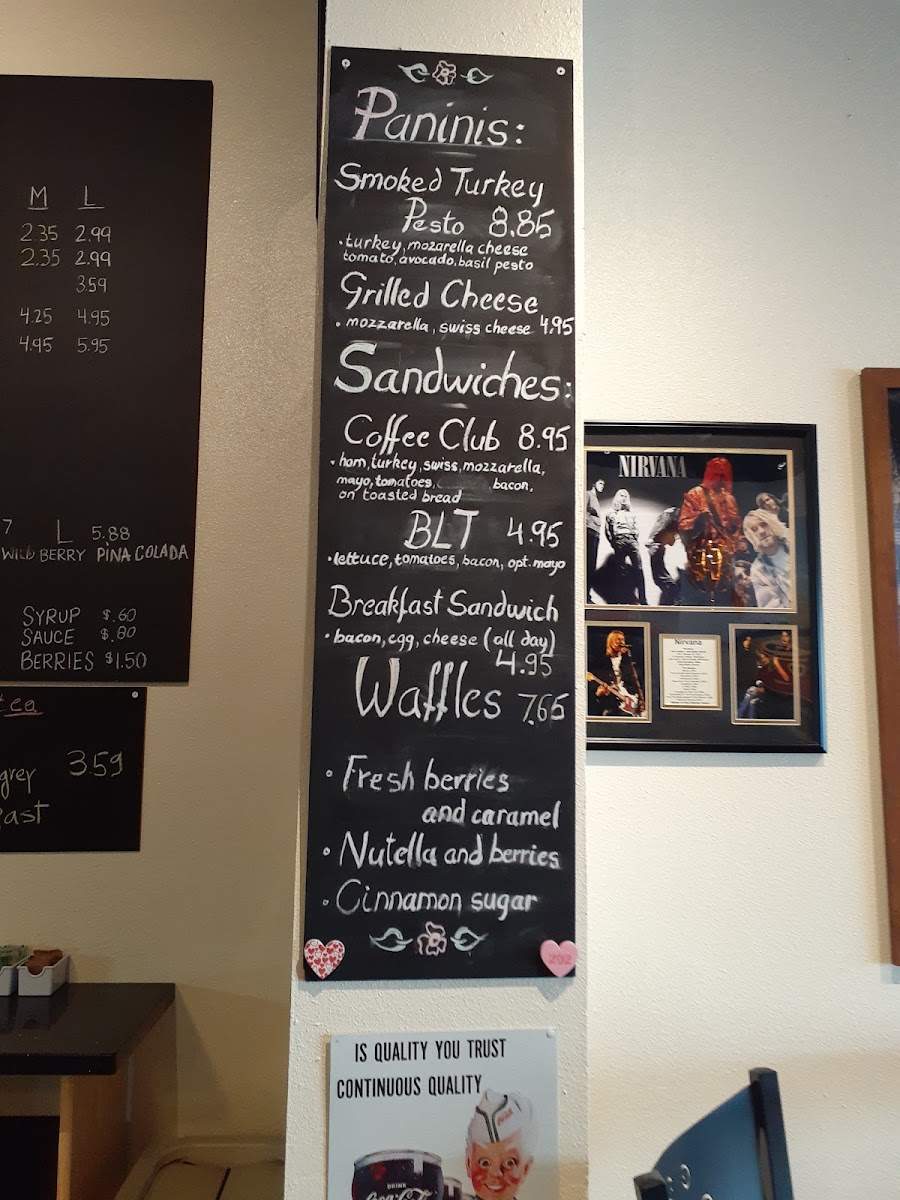 M L
2.35 2.99
2.35 2.99
3.59
4.25 4.95
4.95 5.95
7 L 5.88
WILD BERRY PINA COLADA
SYRUP $.60
SAUCE $.80
BERRIES $1.50
tea
grey 3.59
Paninis:
Smoked Turkey
Pesto 8.85
•turkey, mozarella cheese
tomato, avocado, basil pesto
Grilled Cheese
• mozzarella, swiss cheese 4.95
Sandwiches:
Coffee Club 8.95
• ham, turkey, swiss, mozzarella,
mayo, tomatoes, bacon,
on toasted bread
BLT 4.95
•lettuce, tomatoes, bacon, opt. mayo
Breakfast Sandwich
• bacon, egg, cheese (all day)
4.95
Waffles 7.65
• Fresh berries
and caramel
• Nutella and berries
• Cinnamon sugar
202
NIRVANA
Nirvana
IS QUALITY YOU TRUST
CONTINUOUS QUALITY
DRINK
Coca-Cola